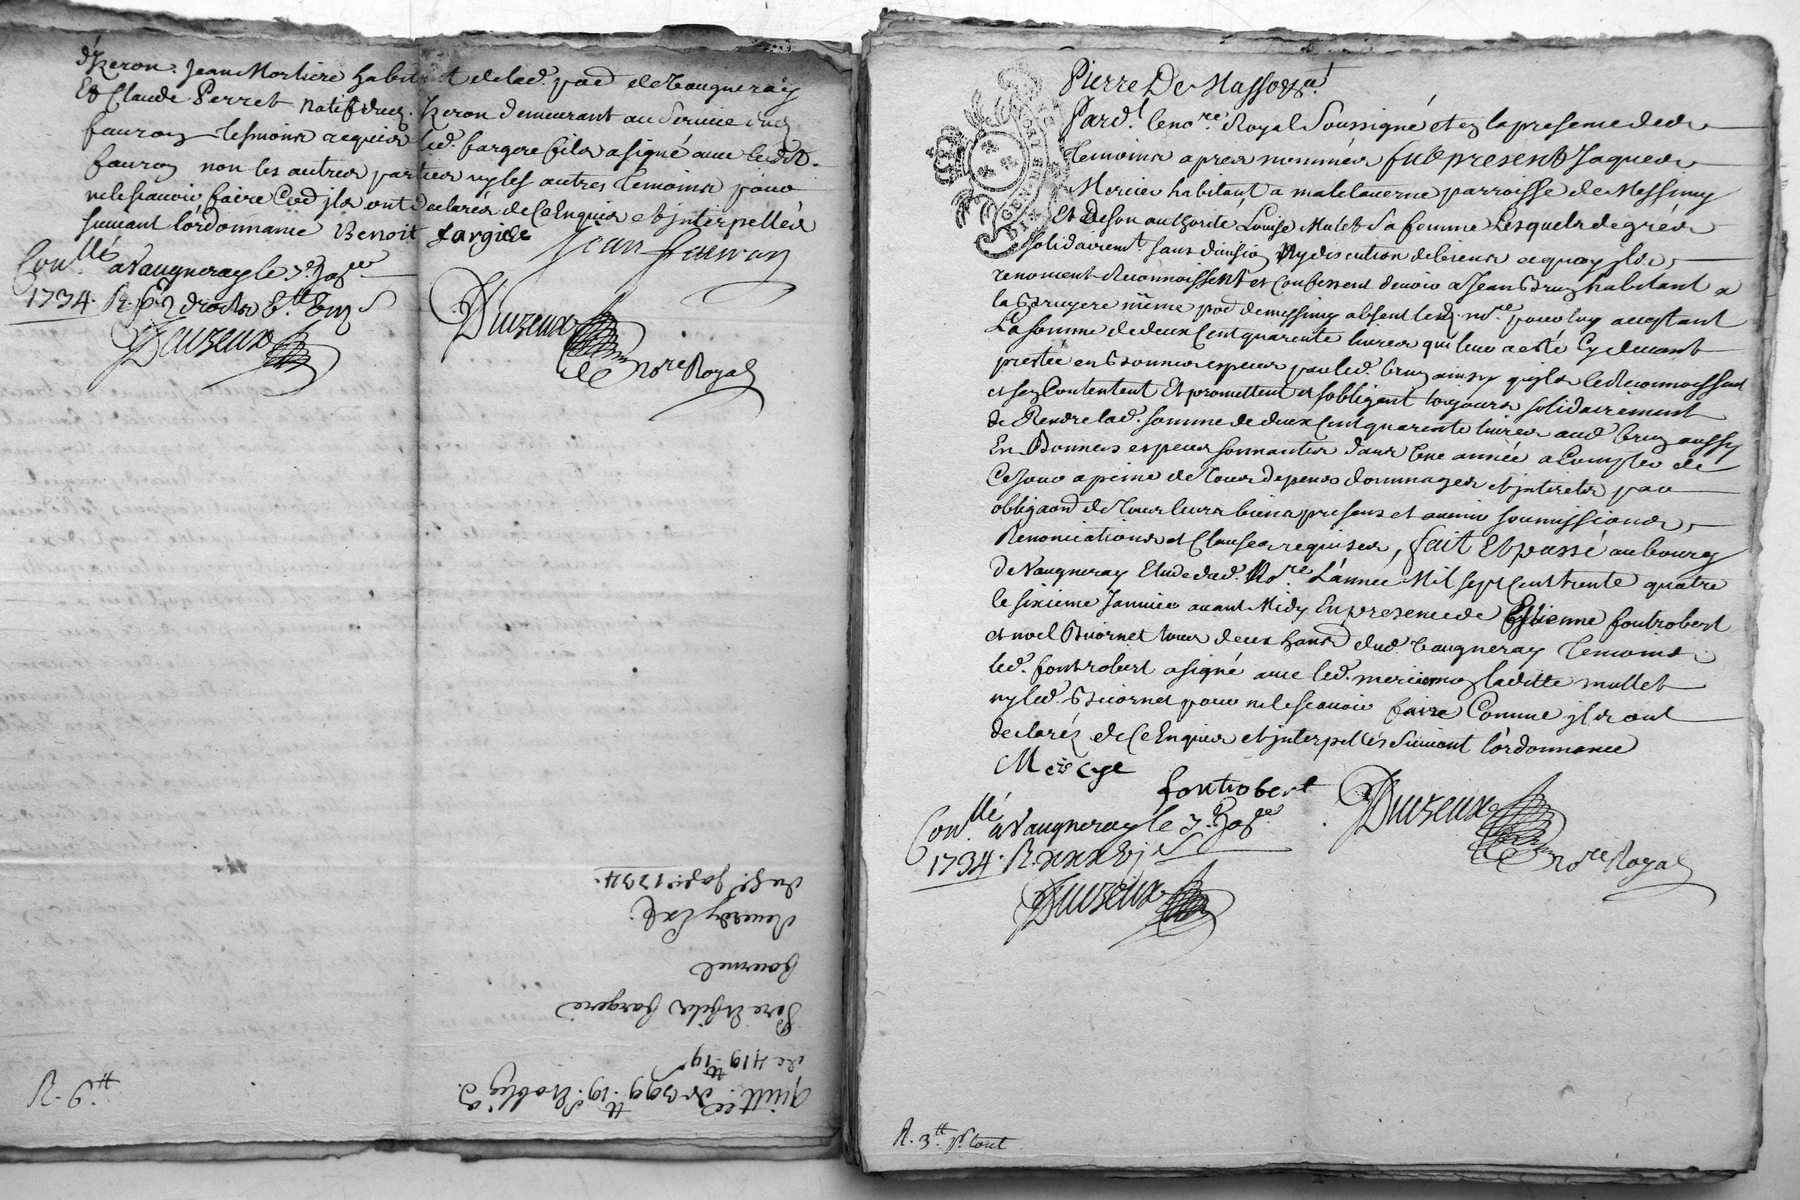 d'Yzeron. Jean Morliere habitant de lad. parr. de Vaugneray
Et Claude Perret natif dud. Yzeron demeurant au Service dud.
fauron tesmoins requis led. fargere fils a signé avec ledit.
fauron non les autres parties ny les autres temoins pour
ne le scavoir faire Co͠e ils ont declarés de ce Enquis et interpellés
suivant l'ordonnance Benoit fargere
Jean fauron
Con.llé a Vaugneray le 7e
1734. R. droits
Duizeux
Duizeux
nore Royal
du 6e. janv. 1734.
Pere et fils fargere
de 419 tt 19
quitt.ce de 399 tt. 19. Et oblig.
R. 9 tt
GENERALITE
Pierre De Masso &a.
Pard.t le no.re Royal Soussigné et en la presence des
temoins apres nommés fut present Jaques
Mercier habitant a maletaverne parroisse de Messimy
Et De son authorité Louise Mulet Sa femme Lesquels de grés
solidairemt. sans division Ny discution de biens a quoy ils
renoncent Reconnoissent et confessent devoir a Jean Bruy habitant a
la Bruyere même par. de messimy absent led. no.re pour luy acceptant
La somme de deux Cent quarente livres qui leur a esté Cy devant
prestée en Bonnes especes par led. bruy ainsy qu'ils le Reconnoissent
et s'en Contentent Et promettent et s'obligent toujours solidairement
de Rendre lad. somme de deux Cent quarente livres aud. bruy aussy
En Bonnes especes sonnantes dans Une année a Compter de
Ce jour a peine de tous depens dommages et interets par
obligaon. de tous leurs biens presens et avenir soumissions,
Renonciations et Clauses requises, fait Et passé au bourg
de Vaugneray Etude dud. No.re L'année Mil sept Cent trente quatre
le sixieme Janvier avant Midy En presence de Estienne fontrobert
et noel Buornet tous deux hans. dud. Vaugneray temoins
led. fontrobert a signé avec led. mercier non laditte mullet
ny led. Buornet pour ne le scavoir faire Comme ils ont
declarés de Ce Enquis et interpellés Suivant l'ordonnance
Mercye
fontrobert
Duizeux
nore Royal
Con.llé a Vaugneray le 7e
1734. R. xxx
Duizeux
R. 3 tt pr. tout